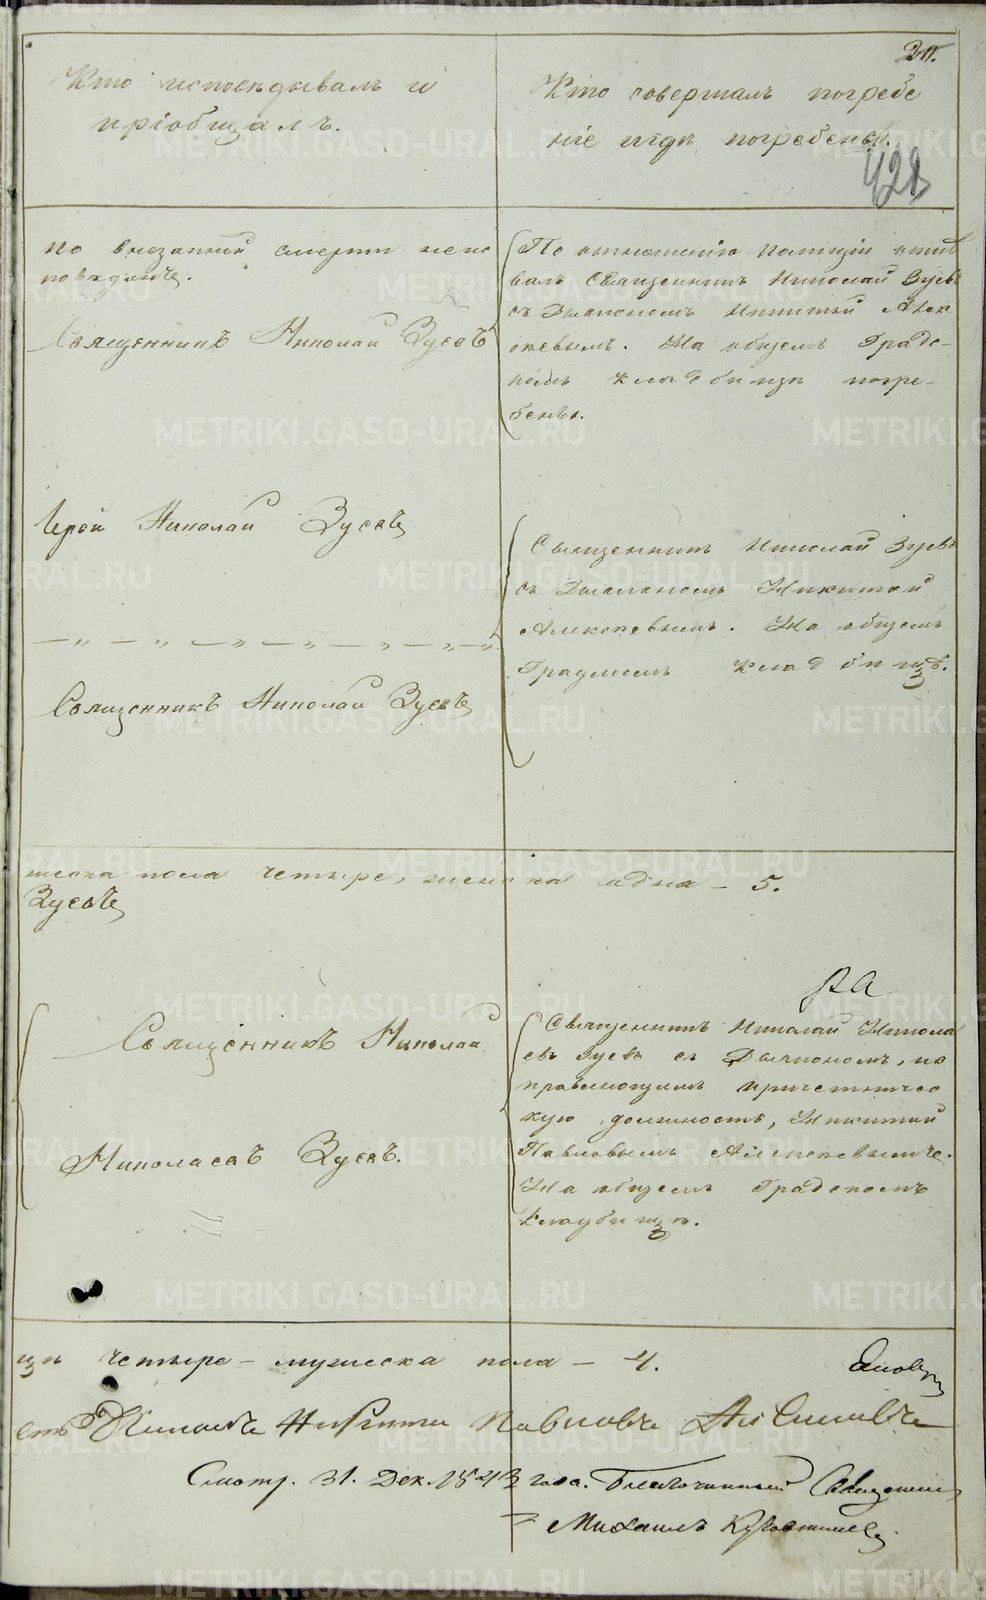 Кто исповѣдывалъ и
пріобщалъ.
Кто совершалъ погребе
ніе и гдѣ погребены.
428
по внезапной смерти неис
повѣданъ.
Священникъ Николай Зуевъ
По отношенію полиціи отпѣ
валъ Священникъ Николай Зуевъ
съ Дьякономъ Никитой Алек
сѣевымъ. На общемъ Град-
скомъ кладбищѣ погре-
бенъ.
Іерей Николай Зуевъ
Священникъ Николай Зуевъ
Священникъ Николай Зуевъ
съ Дьякономъ Никитой
Алексѣевымъ. На общемъ
Градскомъ кладбищѣ.
жеска пола четыре, женска одна – 5.
Зуевъ
Священникъ Николай
Николаевъ Зуевъ.
Священникъ Николай Никола
евъ Зуевъ съ Дьякономъ, ис
правляющимъ причетничес
кую должность, Никитой
Павловымъ Алексѣевымъ.
На общемъ Градскомъ
кладбищѣ.
щъ четыре – мужеска пола – 4.
Дьяконъ Никита Павловъ
Смотр. 31. Дек. 1843 года. Благочинный Священник
Михаилъ
METRIKI.GASO-URAL.RU